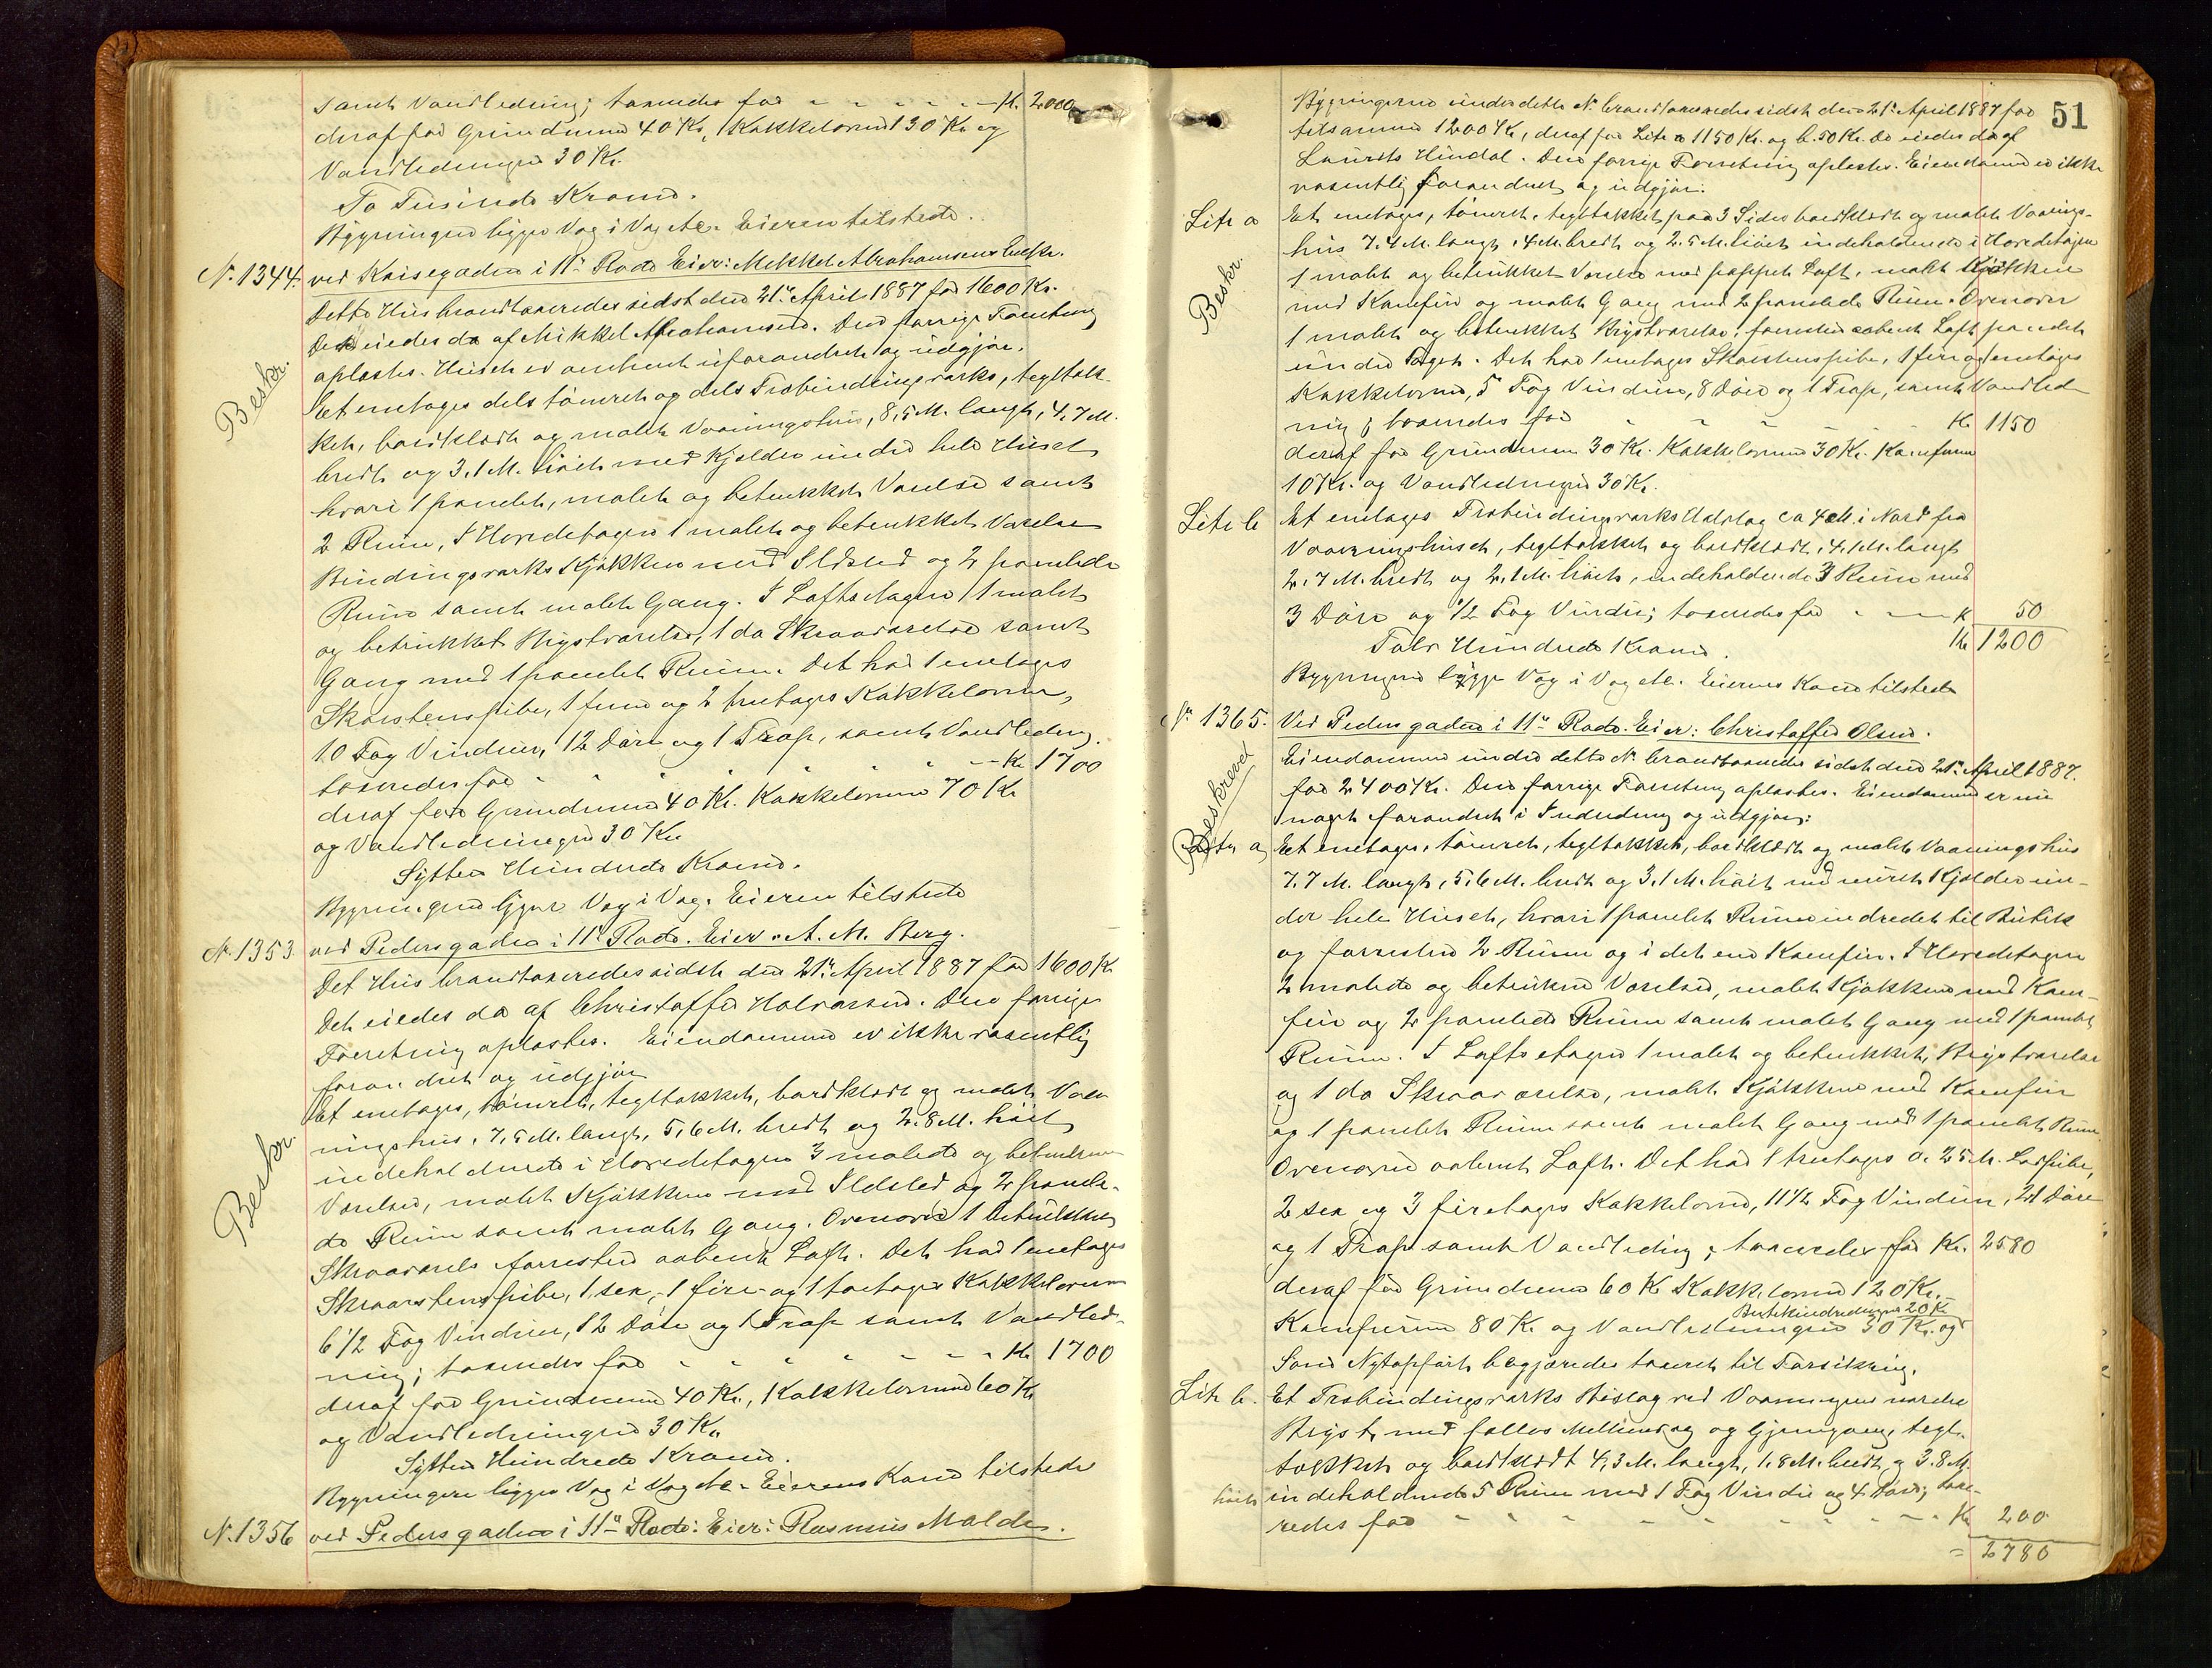 samt Vandledning; taxeredes for - - - - - - Kr. 2000
deraf for Grundmuren 40 Kr., Kakkelovnene 130 Kr. og
Vandledningen 30 Kr.
To Tusinde Kroner.
Bygningen ligger Væg i Væg &c. Eieren tilstede.
N. 1344. ved Kaisegaden i 11te Rode Eier: Mikkel Abrahamsens
Dette Hus brandtaxeredes sidst den 21de April 1887 for 1600 Kr.
Det eiedes da af Mikkel Abrahamsen. Den forrige Forretning
Beskr.
oplæstes. Huset er omtrent uforandret og udgjør:
Et enetages dels tømret og dels Træbindingsværks, tegltæk-
ket, bordklædt og malet Vaaningshus, 8,5 M. langt, 4,7 M.
bredt og 3,1 M. høit med Kjelder under hele Huset
hvori 1 panelet, malet og betrukket Værelse samt
2 Rum, I Hovedetagen 1 malet og betrukket Værelse
Bindingsværks Kjøkken med Ildsted og 2 panelede
Rum samt malet Gang. I Loftsetagen 1 malet
og betrukket Kvistværelse, 1 do Skraaværelse samt
Gang med 1 panelet Rum. Det har 1 enetages
Skorstenspibe, 1 fem og 2 treetages Kakkelovne,
10 Fag Vinduer, 12 Døre og 1 Trap, samt Vandledning.
taxeredes for - - - - - - Kr. 1700
deraf for Grundmuren 40 Kr. Kakkelovnene 70 Kr
og Vandledningen 30 Kr.
Sytten Hundrede Kroner.
Bygningen ligger Væg i Væg. Eieren tilstede
N. 1353. ved Pedersgaden i 11te Rode. Eier: A. M. Berg.
Det Hus brandtaxeredes sidst den 21de April 1887 for 1600 Kr
Det eiedes da af Christoffer Halvorsen. Den forrige
Forretning oplæstes. Eiendommen er ikke væsentlig
forandret og udgjør
Beskr.
Et enetages, tømret, tegltækket, bordklædt og malet Vaa-
ningshus, 7,5 M. langt, 5,6 M. bredt og 2,8 M. høit
indeholdende i Hovedetagen 3 malede og betrukne
Værelser, malet Kjøkken med Ildsted og 2 panele-
de Rum samt malet Gang. Ovenover 1 betrukket
Skraaværels forresten aabent Loft. Det har 1 enetages
Skorstenspibe, 1 sex, 1 fire- og 1 toetages Kakkelovn
6 1/2 Fag Vinduer, 12 Døre og 1 Trap samt Vandled-
ning; taxeredes for - - - - - - Kr. 1700
deraf for Grundmuren 40 Kr., Kakkelovnene 60 Kr
og Vandledningen 30 Kr.
Sytten Hundrede Kroner.
Bygningen ligger Væg i Væg &c. Eierens Kone tilstede
N. 1356 ved Pedersgaden i 11te Rode: Eier: Rasmus Malde.
51
Bygningerne under dette N. brandtaxeredes sidst den 21de April 1887 for
tilsammen 1200 Kr, deraf for Litr a 1150 Kr. og b. 50 Kr. De eiedes da af
Laurits Hindal. Den forrige Forretning oplæstes. Eiendommen er ikke
væsentlig forandret og udgjør:
Litr a Et enetages, tømret, tegltækket paa 3 Sider bordklædt og malet Vaanings-
hus 7,4 M. langt, 4 M. bredt og 2,5 M. høit indeholdende i Hovedetagen
Beskr.
1 malet og betrukket Værelse med pappet Loft, malet Kjøkken
med Komfur og malet Gang med 2 panelede Rum. Ovenover
1 malet og betrukket Kvistværelse, forresten aabent Loft panelet
under Taget. Det har 1 enetages Skorstenspibe, 1 fire og 1 enetages
Kakkelovne, 5 Fag Vinduer, 8 Døre og 1 Trap, samt Vandled-
ning; taxeredes for - - - - Kr. 1150
deraf for Grundmuren 30 Kr. Kakkelovnene 30 Kr. Komfuren
10 Kr. og Vandledningen 30 Kr.
Litr b Et enetages Træbindingsværks Udslag ca 4 M. i Nord fra
Vaaningshuset, tegltækket og bordklædt, 4,1 M. langt
2,7 M. bredt og 2,1 M. høit, indeholdende 3 Rum med
3 Døre og 1/2 Fag Vindu; taxeredes for - - - K 50
Kr 1200
Tolv Hundrede Kroner.
Bygningen ligge Væg i Væg &c. Eierens Kone tilstede
N. 1365. Ved Pedersgaden i 11te Rode. Eier: Christoffer Olsen.
Beskrevet
Eiendommen under dette N. brandtaxeredes sidst den 21de April 1887.
for 2400 Kr. Den forrige Forretning oplæstes. Eiendommen er nu
noget forandret i Indredning og udgjør:
Litr a Et enetages, tømret, tegltækket, bordklædt og malet Vaaningshus
7,7 M. langt, 5,6 M. bredt og 3,1 M. høit med muret Kjelder un-
der hele Huset, hvori 1 panelet Rum indredet til Butik
og forresten 2 Rum og i det ene Komfur. I Hovedetagen
2 malede og betrukne Værelser, malet Kjøkken med Kom-
fur og 2 panelede Rum samt malet Gang med 1 panelet
Rum. I Loftsetagen 1 malet og betrukket Kvistværelse
og 1 do Skraaværelse, malet Kjøkken med Komfur
og 1 panelet Rum samt malet Gang med 1 panelet Rum
Ovenover aabent Loft. Det har 1 treetages
2 sex og 3 fireetages Kakkelovne, 11 1/2 Fag Vinduer, 21 Døre
og 1 Trap samt Vandledning; taxeredes for Kr. 2580
deraf for Grundmuren 60 Kr Kakkelovnene 120 Kr.
Butikindredningen 20 Kr
Komfurene 80 Kr. og Vandledningen 30 Kr. og
Som Nytopført begjæredes taxeret til Forsikring.
Litr b. Et Træbindingsværks Bislag ved Vaaningens nordre
Kvist med fælles Mellemvæg og Gjennemgang, tegl-
tækket og bordklædt 4,3 M. langt, 1,8 M. bredt og 3,8 M.
høit indeholdende 5 Rum med 1 Fag Vindu og 4 Døre; taxe-
redes for - - - - - - - Kr 200
= 2780